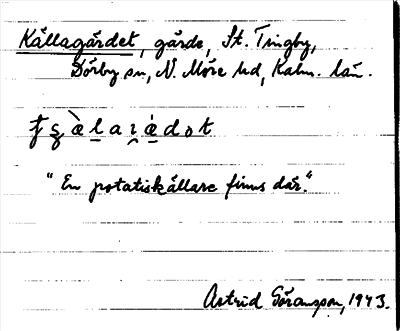 Källagärdet, gärde, St. Tingby,
Dörby sn, N. Möre hd, Kalm. län.
"En potatiskällare finns där."
Astrid Göransson, 1943.